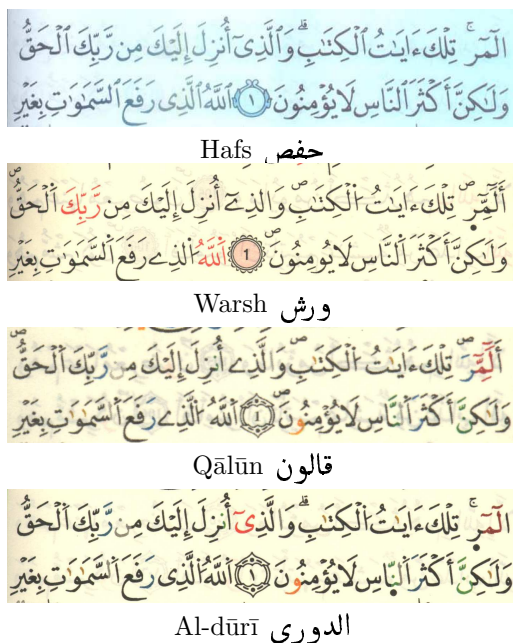 الٓمٓرۚ تِلۡكَ ءَايَٰتُ ٱلۡكِتَٰبِۗ وَٱلَّذِيٓ أُنزِلَ إِلَيۡكَ مِن رَّبِّكَ ٱلۡحَقُّ
وَلَٰكِنَّ أَكۡثَرَ ٱلنَّاسِ لَا يُؤۡمِنُونَ ١ ٱللَّهُ ٱلَّذِي رَفَعَ ٱلسَّمَٰوَٰتِ بِغَيۡرِ
Hafs حفص
أَلَٓمِّٓرۖ تِلۡكَ ءَايَٰتُ اُ۬لۡكِتَٰبِۖ وَالذِےٓ أُنزِلَ إِلَيۡكَ مِن رَّبِّكَ اَ۬لۡحَقُّۖ
وَلَٰكِنَّ أَكۡثَرَ اَ۬لنَّاسِ لَا يُومِنُونَۖ 1 اَ۬للَّهُ اُ۬لذِے رَفَعَ اَ۬لسَّمَٰوَٰتِ بِغَيۡرِ
Warsh ورش
أَلَٓمِّٓرَۖ تِلۡكَ ءَايَٰتُ اُ۬لۡكِتَٰبِۖ وَالَّذِےٓ أُنزِلَ إِلَيۡكَ مِن رَّبِّكَ اَ۬لۡحَقُّۖ
وَلَٰكِنَّ أَكۡثَرَ اَ۬لنَّاسِ لَا يُؤۡمِنُونَۖ 1 اَ۬للَّهُ اُ۬لَّذِے رَفَعَ اَ۬لسَّمَٰوَٰتِ بِغَيۡرِ
Qālūn قالون
الٓمٓرۚ تِلۡكَ ءَايَٰتُ ٱلۡكِتَٰبِۗ وَٱلَّذِيٓ أُنزِلَ إِلَيۡكَ مِن رَّبِّكَ ٱلۡحَقُّ
وَلَٰكِنَّ أَكۡثَرَ ٱلنَّاسِ لَا يُؤۡمِنُونَ ١ ٱللَّهُ ٱلَّذِي رَفَعَ ٱلسَّمَٰوَٰتِ بِغَيۡرِ
Al-dūrī الدوري